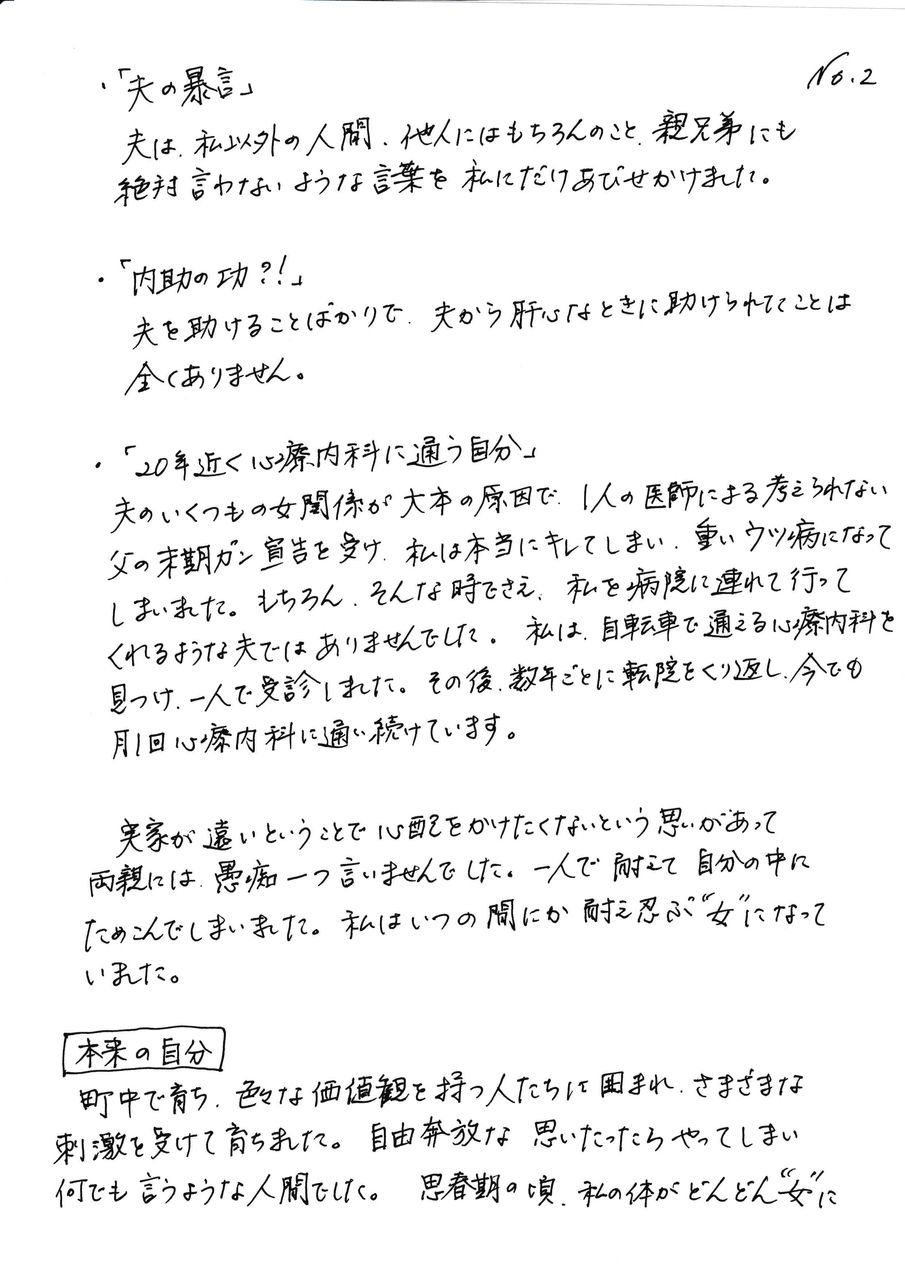 No.2
・「夫の暴言」
夫は、私以外の人間、他人にはもちろんのこと、親兄弟にも
絶対言わないような言葉を私にだけあびせかけました。
・「内助の功?!」
夫を助けることばかりで、夫から肝心なときに助けられてことは
全くありません。
・「20年近く心療内科に通う自分」
夫のいくつもの女関係が大本の原因で、1人の医師による考えられない
父の末期ガン宣告を受け、私は本当にキレてしまい、重いウツ病になって
しまいました。もちろん、そんな時でさえ、私を病院に連れて行って
くれるような夫ではありませんでした。私は、自転車で通える心療内科を
見つけ、一人で受診しました。その後、数年ごとに転院をくり返し、今でも
月1回心療内科に通い続けています。
実家が遠いということで心配をかけたくないという思いがあって
両親には、愚痴一つ言いませんでした。一人で耐えて自分の中に
ためこんでしまいました。私はいつの間にか耐え忍ぶ“女”になって
いました。
本来の自分
町中で育ち、色々な価値観を持つ人たちに囲まれ、さまざまな
刺激を受けて育ちました。自由奔放な思いたったらやってしまい
何でも言うような人間でした。思春期の頃、私の体がどんどん“女”に